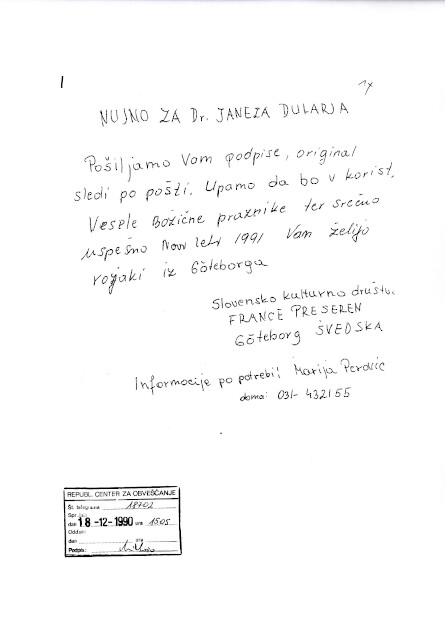 1x
NUJNO ZA Dr. JANEZA DULARJA
Pošiljamo Vam podpise, original
sledi po pošti. Upamo da bo v korist.
Vesele Božične praznike ter srečno
uspešno Novo leto 1991 Vam želijo
rojaki iz Göteborga
Slovensko kulturno društvo
FRANCE PREŠEREN
Göteborg ŠVEDSKA
Informacije po potrebi: Marija Perovič
doma: 031- 432155
REPUBL. CENTER ZA OBVEŠČANJE
Št. telegrama 18702
Sprejel:
dan 18 -12- 1990 ura 1505
Oddal:
dan ura
Podpis: